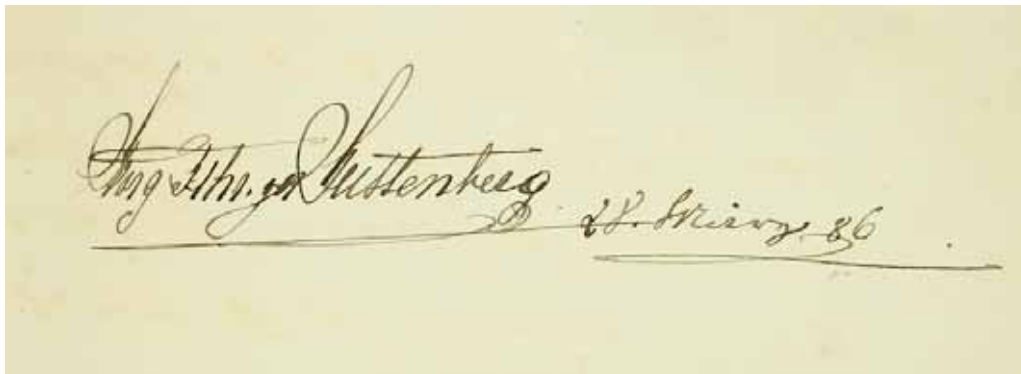 Frhr. Guttenberg 28. März. 86